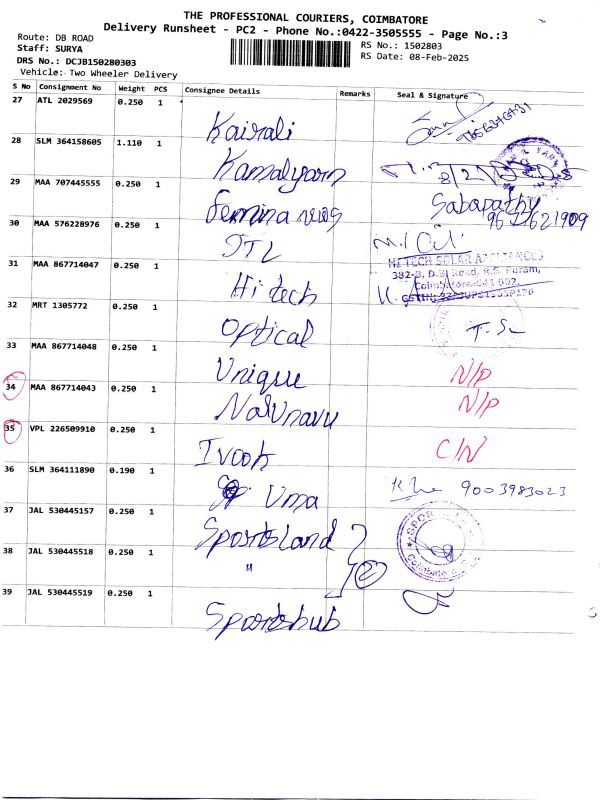 THE PROFESSIONAL COURIERS, COIMBATORE
Delivery Runsheet - PC2 - Phone No.:0422-3505555 - Page No.:3
Route: DB ROAD
Staff: SURYA
DRS No.: DCJB150280303
Vehicle: Two Wheeler Delivery
RS No.: 1502803
RS Date: 08-Feb-2025
S No Consignment No Weight PCS Consignee Details Remarks Seal & Signature
27 ATL 2029569 0.250 1 Kairali
28 SLM 364158605 1.110 1 Kamalyarn
29 MAA 707445555 0.250 1 Femina news Sabapathy
9677621909
30 MAA 576228976 0.250 1 JTL
HI TECH SOLAR APPLIANCES
382-B, D.B. Road, R.S. Puram,
Coimbatore-641 002.
31 MAA 867714047 0.250 1 Hi tech
32 MRT 1305772 0.250 1 Optical
33 MAA 867714048 0.250 1 Unique N/P
34 MAA 867714043 0.250 1 NalUnavu N/P
35 VPL 226509910 0.250 1 Ivook C/N
36 SLM 364111890 0.190 1 Uma 9003983023
37 JAL 530445157 0.250 1 Sportsland
38 JAL 530445518 0.250 1 " 2
39 JAL 530445519 0.250 1 Sportshub